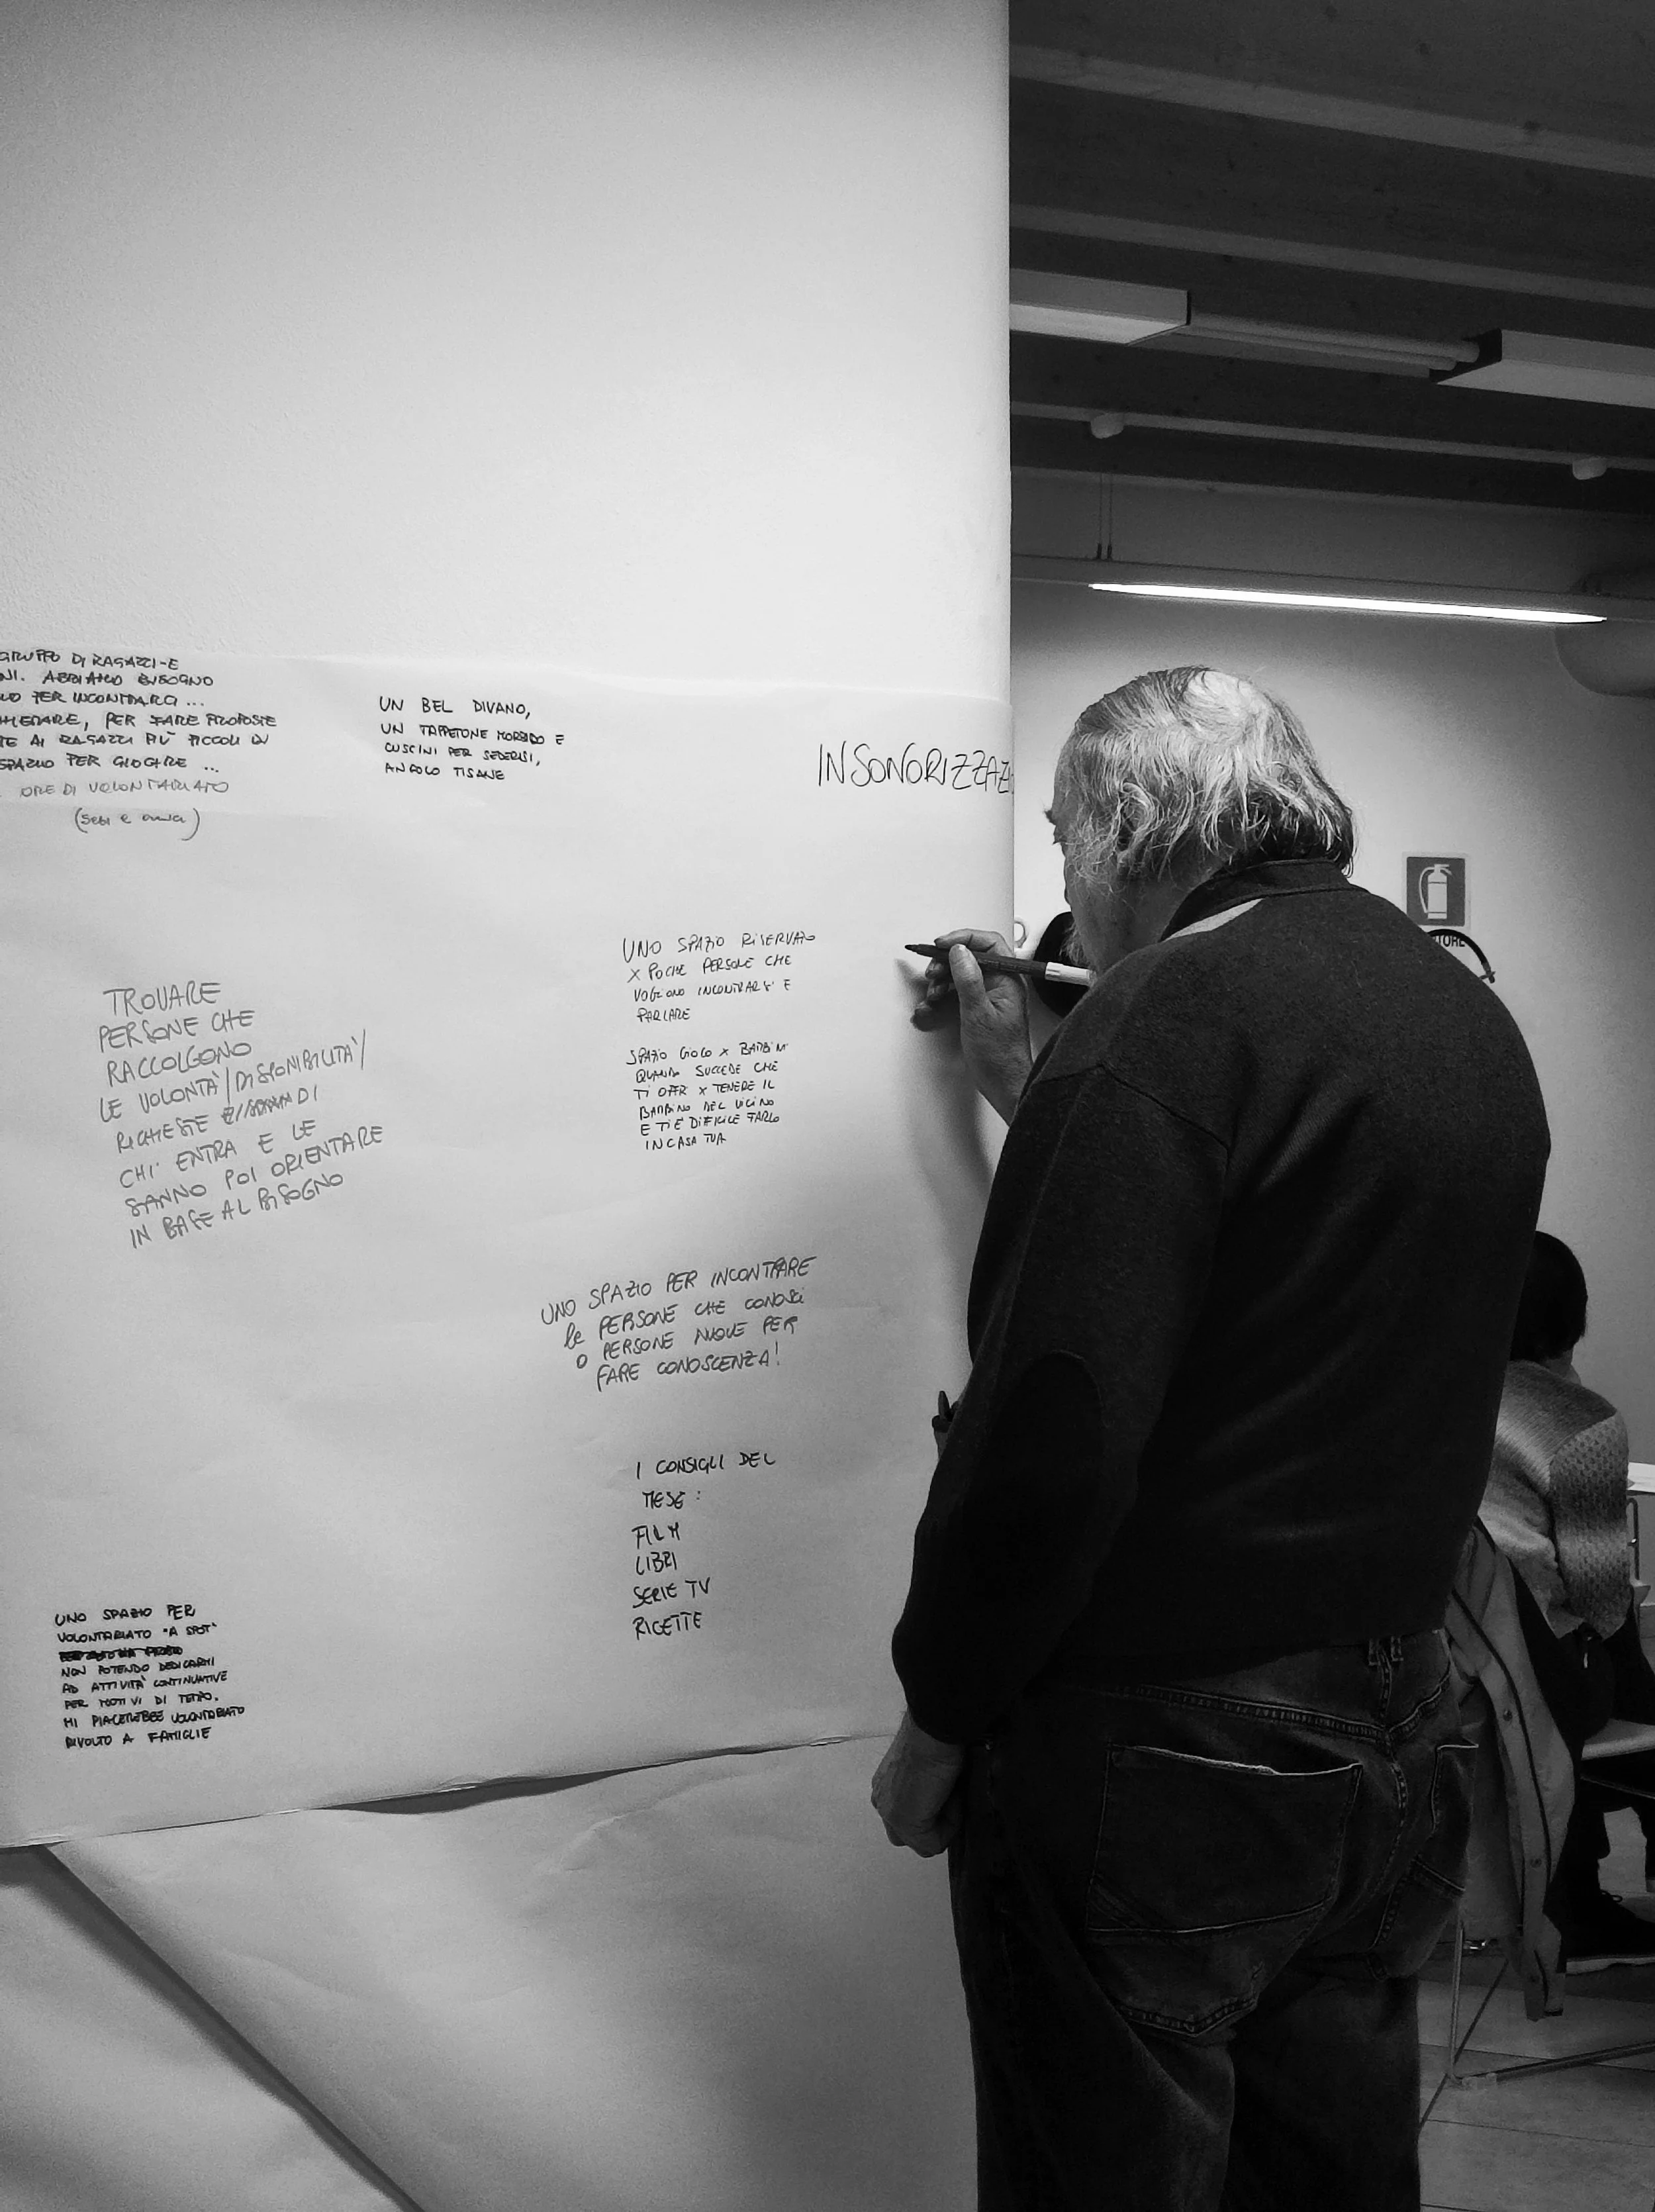 GRUPPO DI RAGAZZI-E
NI. ABBIAMO BISOGNO
PER INCONTRARCI ...
PER FARE PROPOSTE
TE AI RAGAZZI PIÙ PICCOLI DI
SPAZIO PER GIOCARE ...
ORE DI VOLONTARIATO
UN BEL DIVANO,
UN TAPPETONE MORBIDO E
CUSCINI PER SEDERSI,
ANGOLO TISANE
INSONORIZZAZI
UNO SPAZIO RISERVATO
X POCHE PERSONE CHE
VOGLIONO INCONTRARSI E
PARLARE
SPAZIO GIOCO X BAMBINI
QUANDO SUCCEDE CHE
TI OFFRI X TENERE IL
BAMBINO DEL VICINO
E TI È DIFFICILE FARLO
IN CASA TUA
TROVARE
PERSONE CHE
RACCOLGONO
LE VOLONTÀ/DISPONIBILITÀ/
RICHIESTE DI
CHI ENTRA E LE
SANNO POI ORIENTARE
IN BASE AL BISOGNO
UNO SPAZIO PER INCONTRARE
le PERSONE CHE CONOSCI
O PERSONE NUOVE PER
FARE CONOSCENZA!
I CONSIGLI DEL
MESE:
FILM
LIBRI
SERIE TV
RICETTE
UNO SPAZIO PER
VOLONTARIATO "A SPOT"
NON POTENDO DEDICARMI
AD ATTIVITÀ CONTINUATIVE
PER MOTIVI DI TEMPO.
MI PIACEREBBE VOLONTARIATO
RIVOLTO A FAMIGLIE
TORE